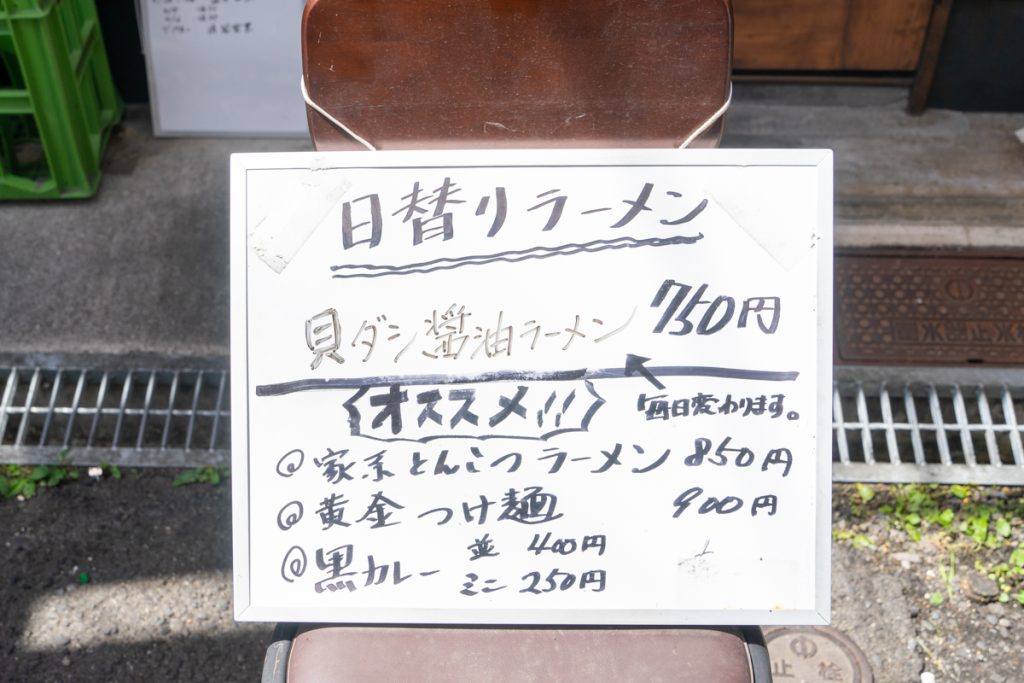 日替りラーメン
貝ダシ醤油ラーメン 750円
オススメ!!
毎日変わります。
@家系とんこつラーメン 850円
@黄金つけ麺 900円
@黒カレー 並 400円
ミニ 250円
止栓